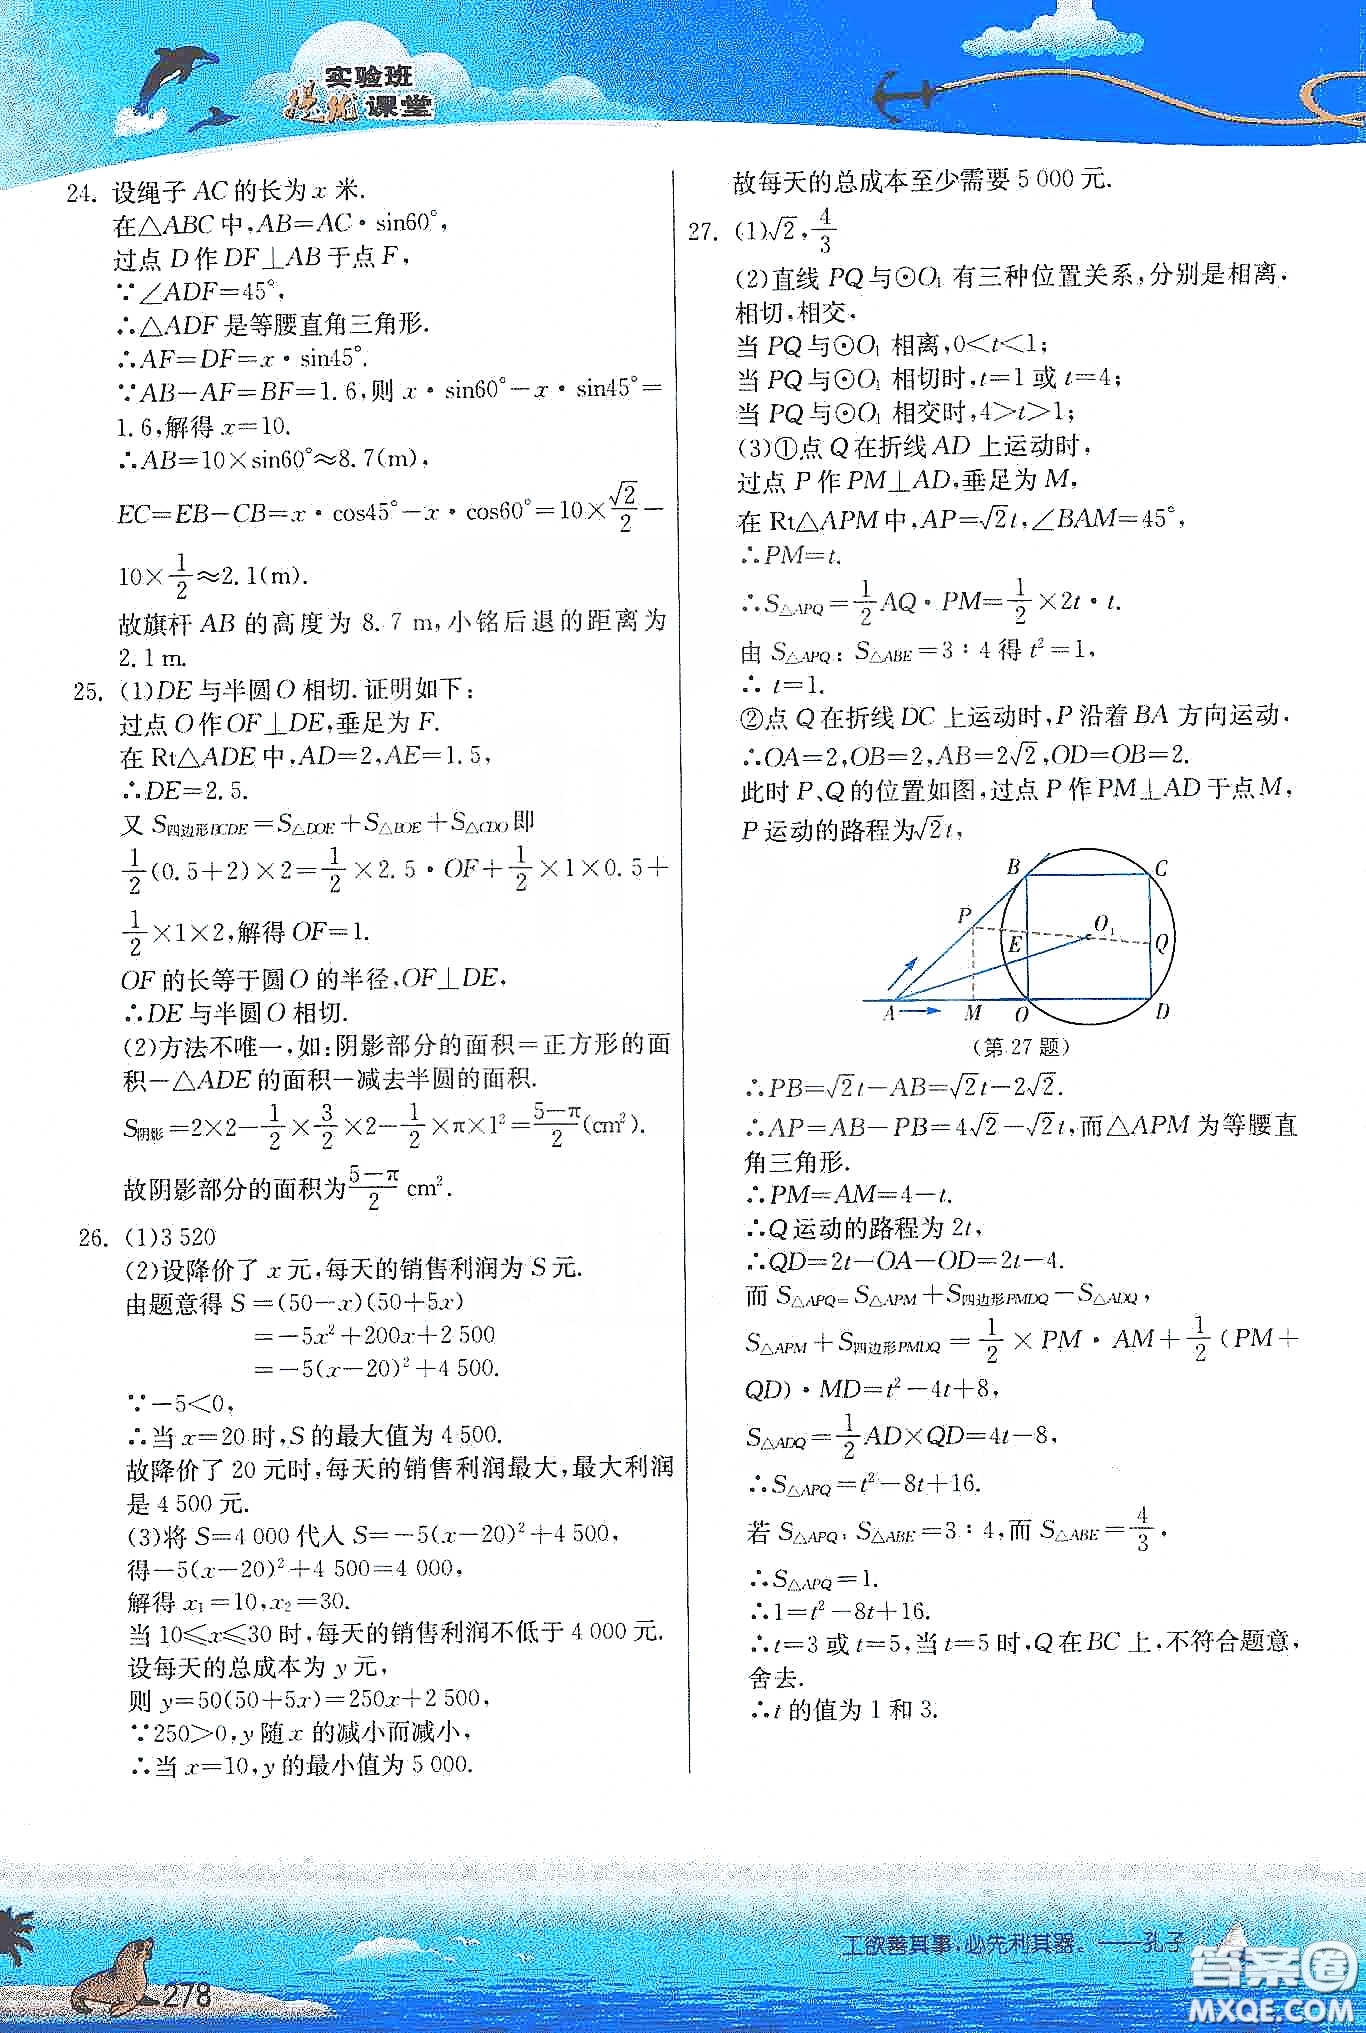 实验班
提优课堂
24. 设绳子 AC 的长为 x 米.
在△ABC 中,AB=AC·sin60°,
过点 D 作 DF⊥AB 于点 F,
∵∠ADF=45°,
∴△ADF 是等腰直角三角形.
∴AF=DF=x·sin45°.
∵AB-AF=BF=1.6,则 x·sin60°-x·sin45°=
1.6,解得 x=10.
∴AB=10×sin60°≈8.7(m),
EC=EB-CB=x·cos45°-x·cos60°=10×√2/2-
10×1/2≈2.1(m).
故旗杆 AB 的高度为 8.7 m,小铭后退的距离为
2.1 m.
25. (1)DE 与半圆 O 相切.证明如下:
过点 O 作 OF⊥DE,垂足为 F.
在 Rt△ADE 中,AD=2,AE=1.5,
∴DE=2.5.
又 S四边形BCDE=S△DOE+S△BOE+S△CDO即
1/2(0.5+2)×2=1/2×2.5·OF+1/2×1×0.5+
1/2×1×2,解得 OF=1.
OF 的长等于圆 O 的半径,OF⊥DE,
∴DE 与半圆 O 相切.
(2)方法不唯一,如:阴影部分的面积=正方形的面
积-△ADE 的面积-减去半圆的面积.
S阴影=2×2-1/2×3/2×2-1/2×π×1²=(5-π)/2(cm²).
故阴影部分的面积为(5-π)/2 cm².
26. (1)3 520
(2)设降价了 x 元,每天的销售利润为 S 元.
由题意得 S=(50-x)(50+5x)
=-5x²+200x+2 500
=-5(x-20)²+4 500.
∵-5<0,
∴当 x=20 时,S 的最大值为 4 500.
故降价了 20 元时,每天的销售利润最大,最大利润
是 4 500 元.
(3)将 S=4 000 代入 S=-5(x-20)²+4 500,
得-5(x-20)²+4 500=4 000,
解得 x₁=10,x₂=30.
当 10≤x≤30 时,每天的销售利润不低于 4 000 元.
设每天的总成本为 y 元,
则 y=50(50+5x)=250x+2 500,
∵250>0,y 随 x 的减小而减小,
∴当 x=10,y 的最小值为 5 000.
故每天的总成本至少需要 5 000 元.
27. (1)√2,4/3
(2)直线 PQ 与⊙O₁ 有三种位置关系,分别是相离,
相切,相交,
当 PQ 与⊙O₁ 相离,0<t<1;
当 PQ 与⊙O₁ 相切时,t=1 或 t=4;
当 PQ 与⊙O₁ 相交时,4>t>1;
(3)①点 Q 在折线 AD 上运动时,
过点 P 作 PM⊥AD,垂足为 M,
在 Rt△APM 中,AP=√2t,∠BAM=45°,
∴PM=t.
∴S△APQ=1/2AQ·PM=1/2×2t·t.
由 S△APQ:S△ABE=3:4 得 t²=1,
∴ t=1.
②点 Q 在折线 DC 上运动时,P 沿着 BA 方向运动,
∴OA=2,OB=2,AB=2√2,OD=OB=2.
此时 P、Q 的位置如图,过点 P 作 PM⊥AD 于点 M,
P 运动的路程为√2t,
B C
P O₁
E Q
A M O D
(第 27 题)
∴PB=√2t-AB=√2t-2√2.
∴AP=AB-PB=4√2-√2t,而△APM 为等腰直
角三角形.
∴PM=AM=4-t.
∴Q 运动的路程为 2t,
∴QD=2t-OA-OD=2t-4.
而 S△APQ=S△APM+S四边形PMDQ-S△ADQ,
S△APM+S四边形PMDQ=1/2×PM·AM+1/2(PM+
QD)·MD=t²-4t+8,
S△ADQ=1/2AD×QD=4t-8,
∴S△APQ=t²-8t+16.
若 S△APQ:S△ABE=3:4,而 S△ABE=4/3,
∴S△APQ=1.
∴1=t²-8t+16.
∴t=3 或 t=5,当 t=5 时,Q 在 BC 上,不符合题意,
舍去.
∴t 的值为 1 和 3.
工欲善其事,必先利其器。——孔子
278
答案圈
MXQE.COM